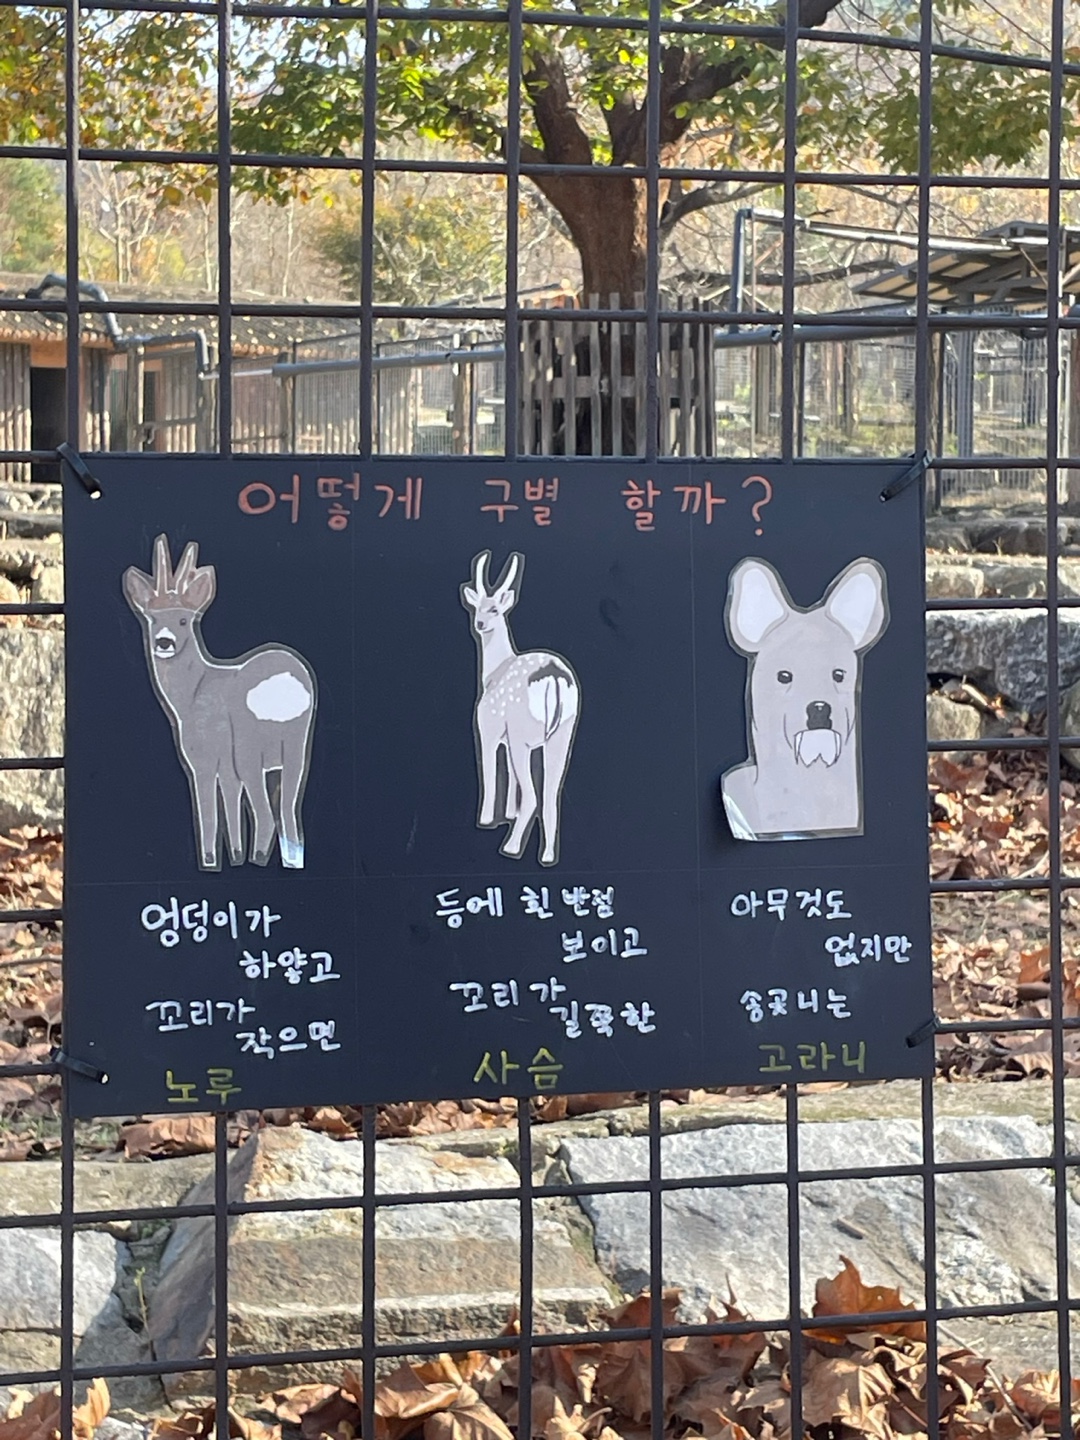 어떻게 구별 할까?
엉덩이가
하얗고
꼬리가
작으면
노루
등에 흰 반점
보이고
꼬리가
길쭉한
사슴
아무것도
없지만
송곳니는
고라니